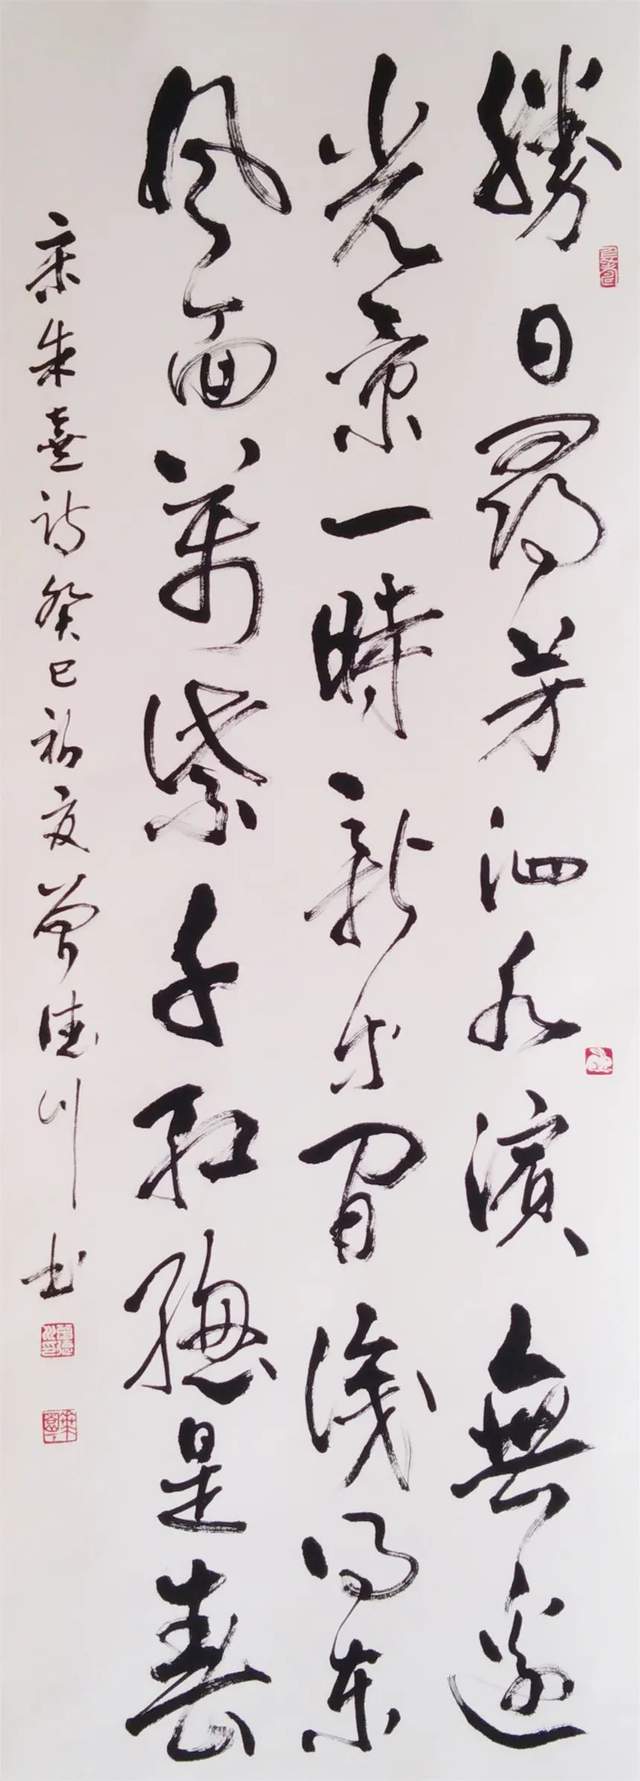 勝日尋芳泗水濱無邊
光景一時新等閒識得東
風面萬紫千紅總是春
宋朱熹詩癸巳初夏曾德川書